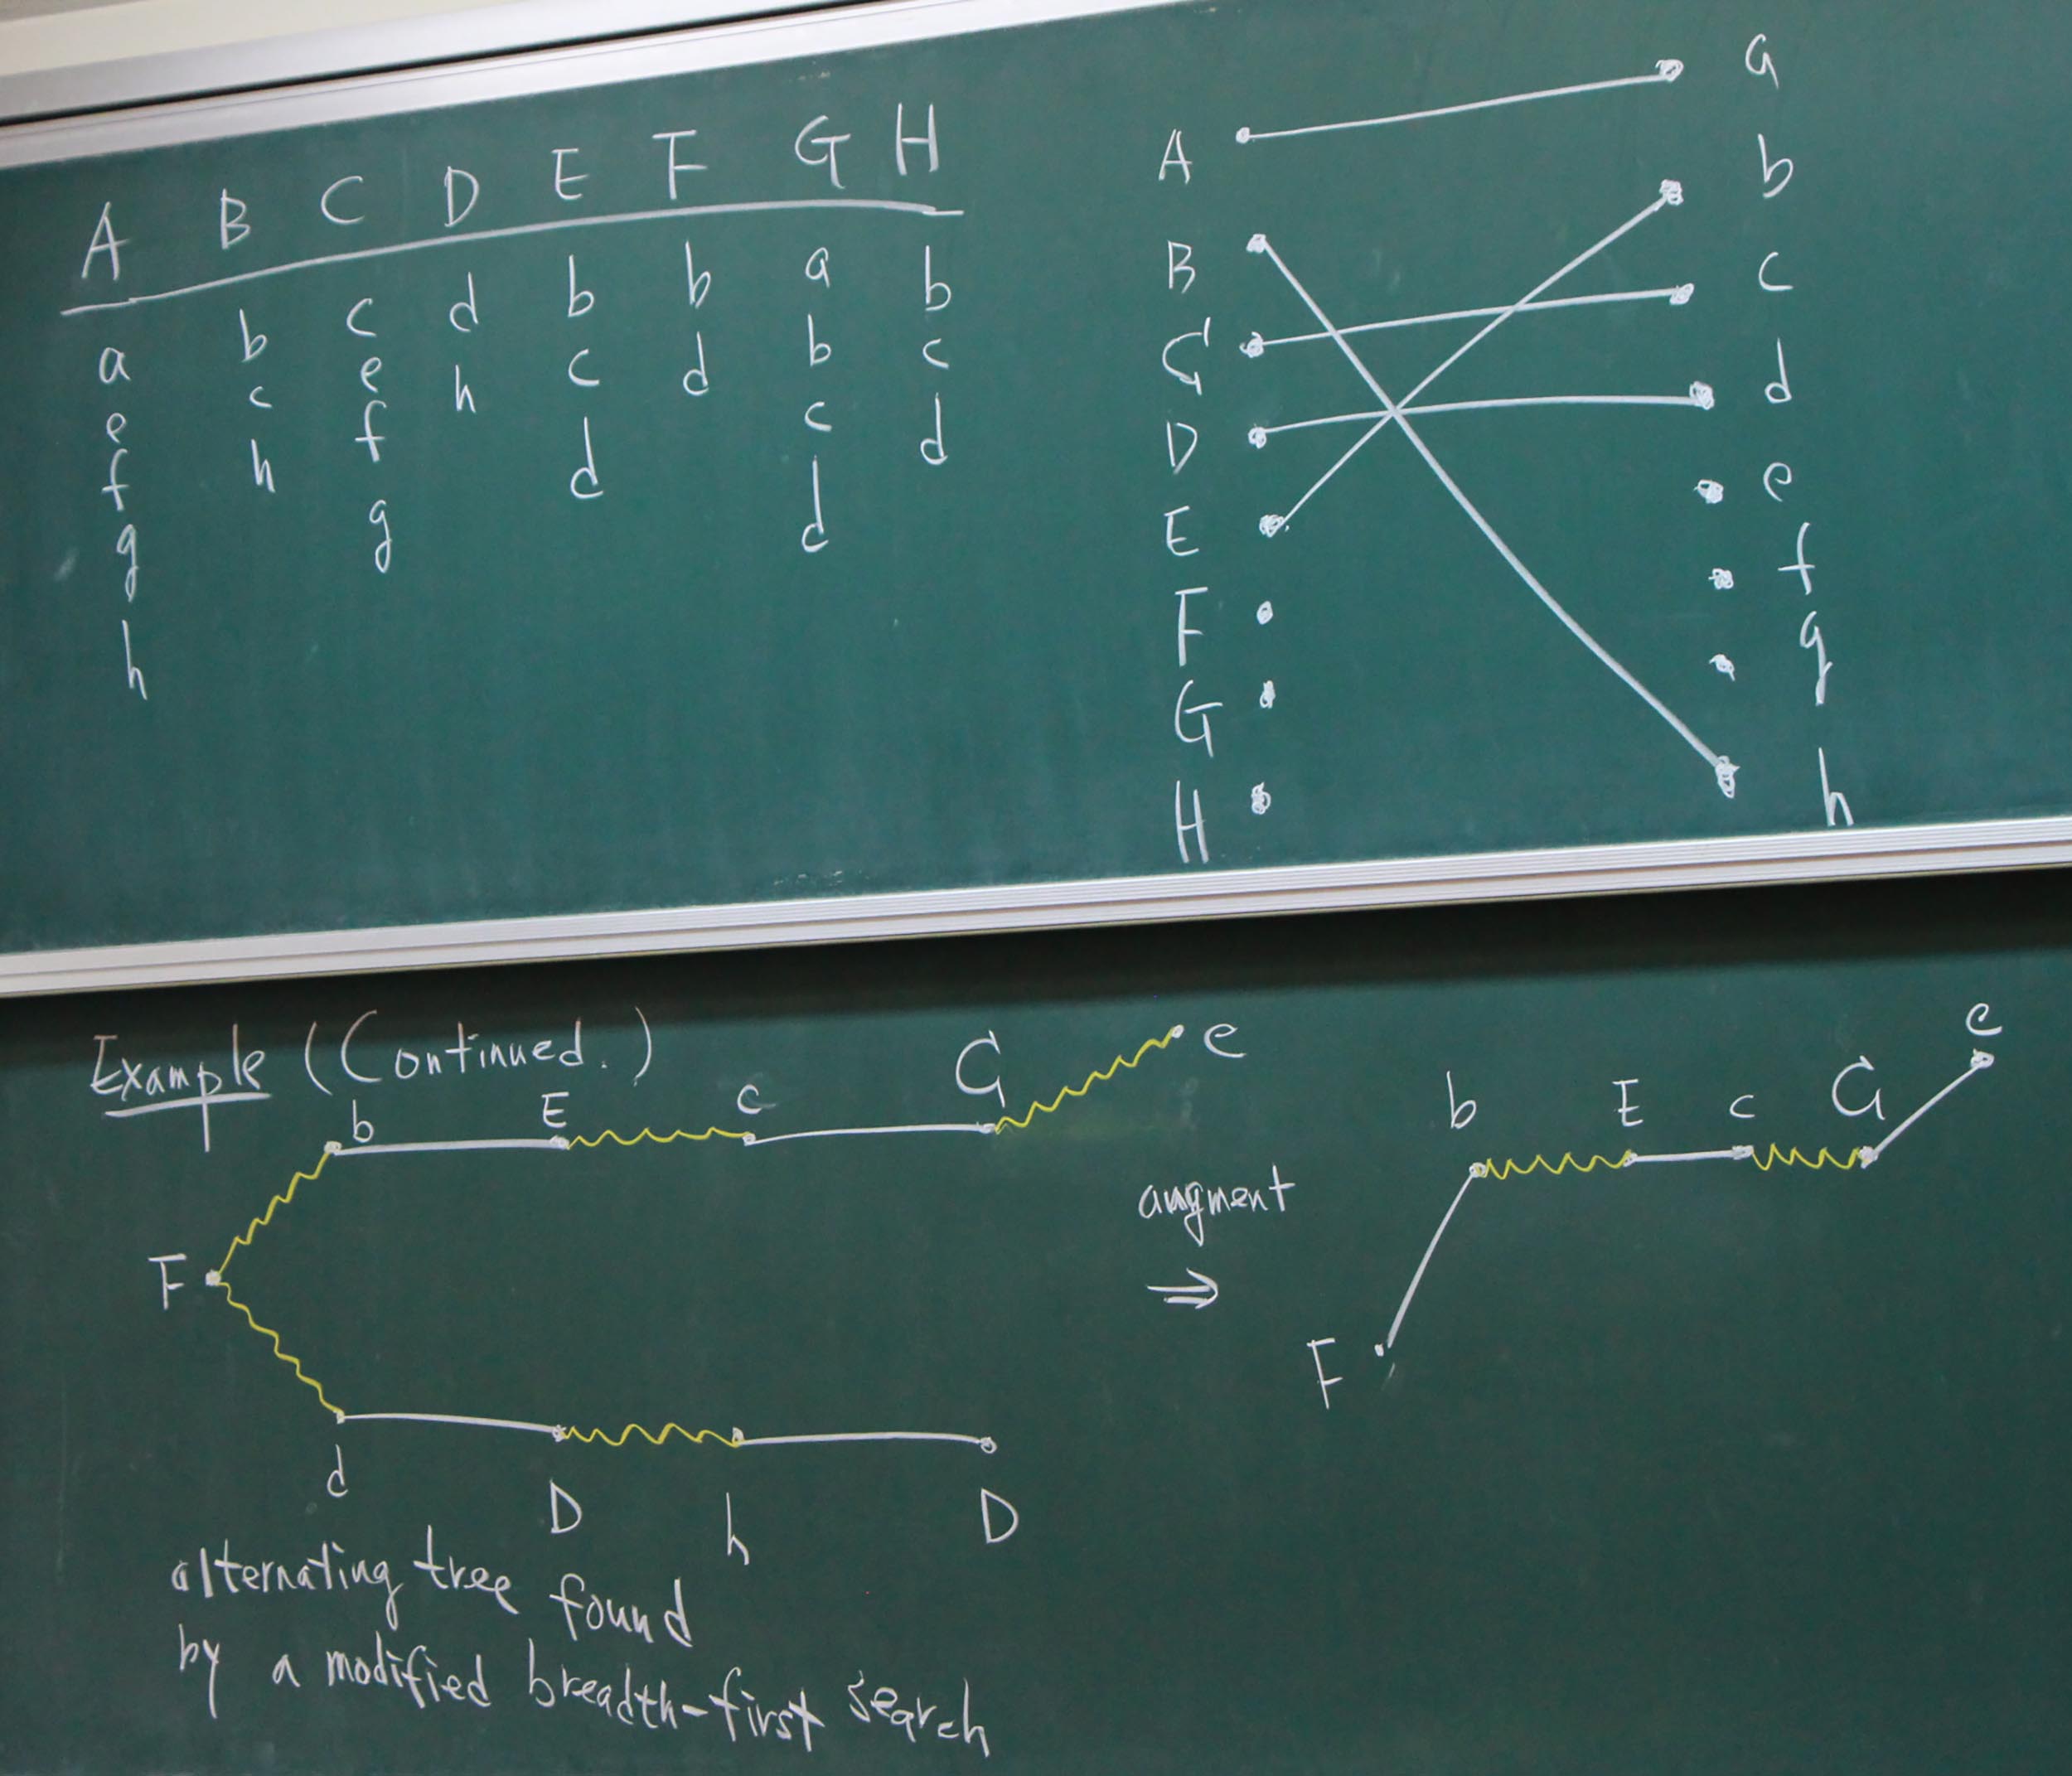 A B C D E F G H
a b c d b b a b
e c e h c d b c
f h f d c d
g g d
h
A a
B b
C c
D d
E e
F f
G g
H h
Example (Continued.)
b E c C e
F
d D h D
alternating tree found
by a modified breadth-first search
augment
⇒
b E c C e
F